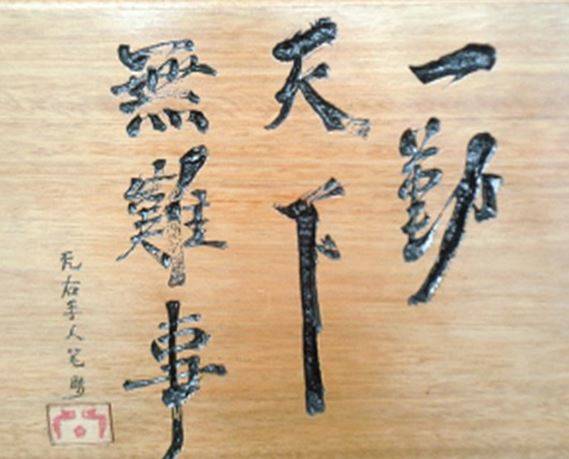 一勤
天下
無難事
无右手人笔雕